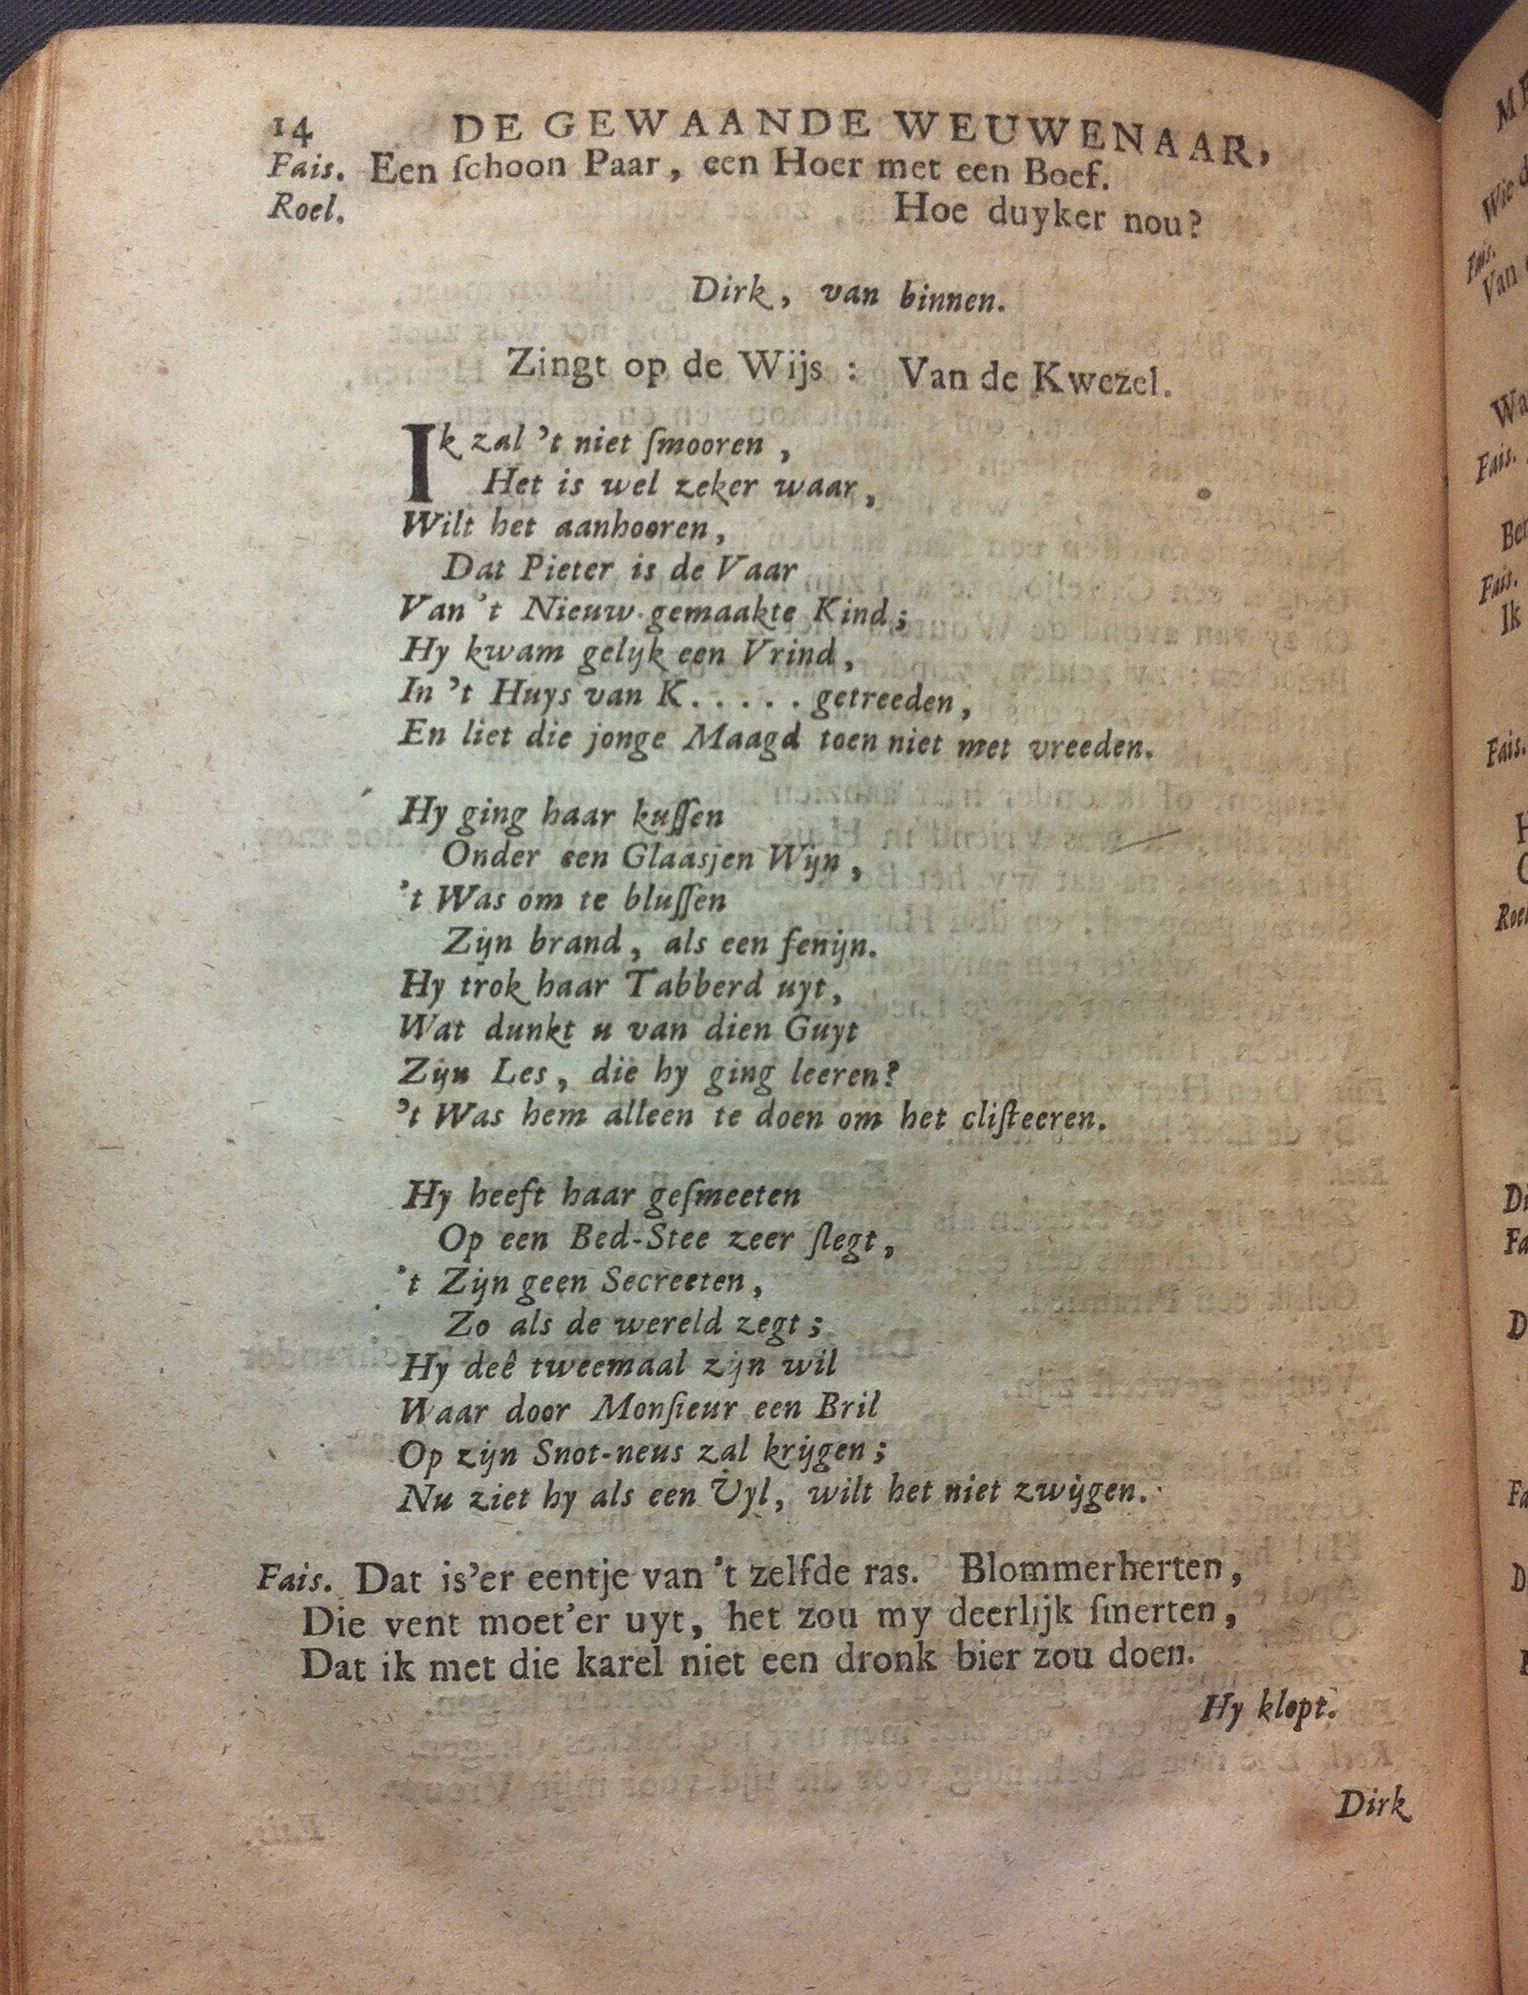 14 DE GEWAANDE WEUWENAAR,
Fais. Een ſchoon Paar, een Hoer met een Boef.
Roel. Hoe duyker nou?
Dirk, van binnen.
Zingt op de Wijs: Van de Kwezel.
Ik zal 't niet ſmooren,
Het is wel zeker waar,
Wilt het aanhooren,
Dat Pieter is de Vaar
Van 't Nieuw-gemaakte Kind;
Hy kwam gelyk een Vrind,
In 't Huys van K. . . . . getreeden,
En liet die jonge Maagd toen niet met vreeden.
Hy ging haar kuſſen
Onder een Glaasjen Wijn,
't Was om te bluſſen
Zijn brand, als een fenijn.
Hy trok haar Tabberd uyt,
Wat dunkt u van dien Guyt
Zijn Les, die hy ging leeren?
't Was hem alleen te doen om het cliſteeren.
Hy heeft haar geſmeeten
Op een Bed-Stee zeer ſlegt,
't Zijn geen Secreeten,
Zo als de wereld zegt;
Hy deê tweemaal zijn wil
Waar door Monſieur een Bril
Op zijn Snot-neus zal krijgen;
Nu ziet hy als een Uyl, wilt het niet zwijgen.
Fais. Dat is'er eentje van 't zelfde ras. Blommerherten,
Die vent moet'er uyt, het zou my deerlijk ſmerten,
Dat ik met die karel niet een dronk bier zou doen.
Hy klopt.
Dirk